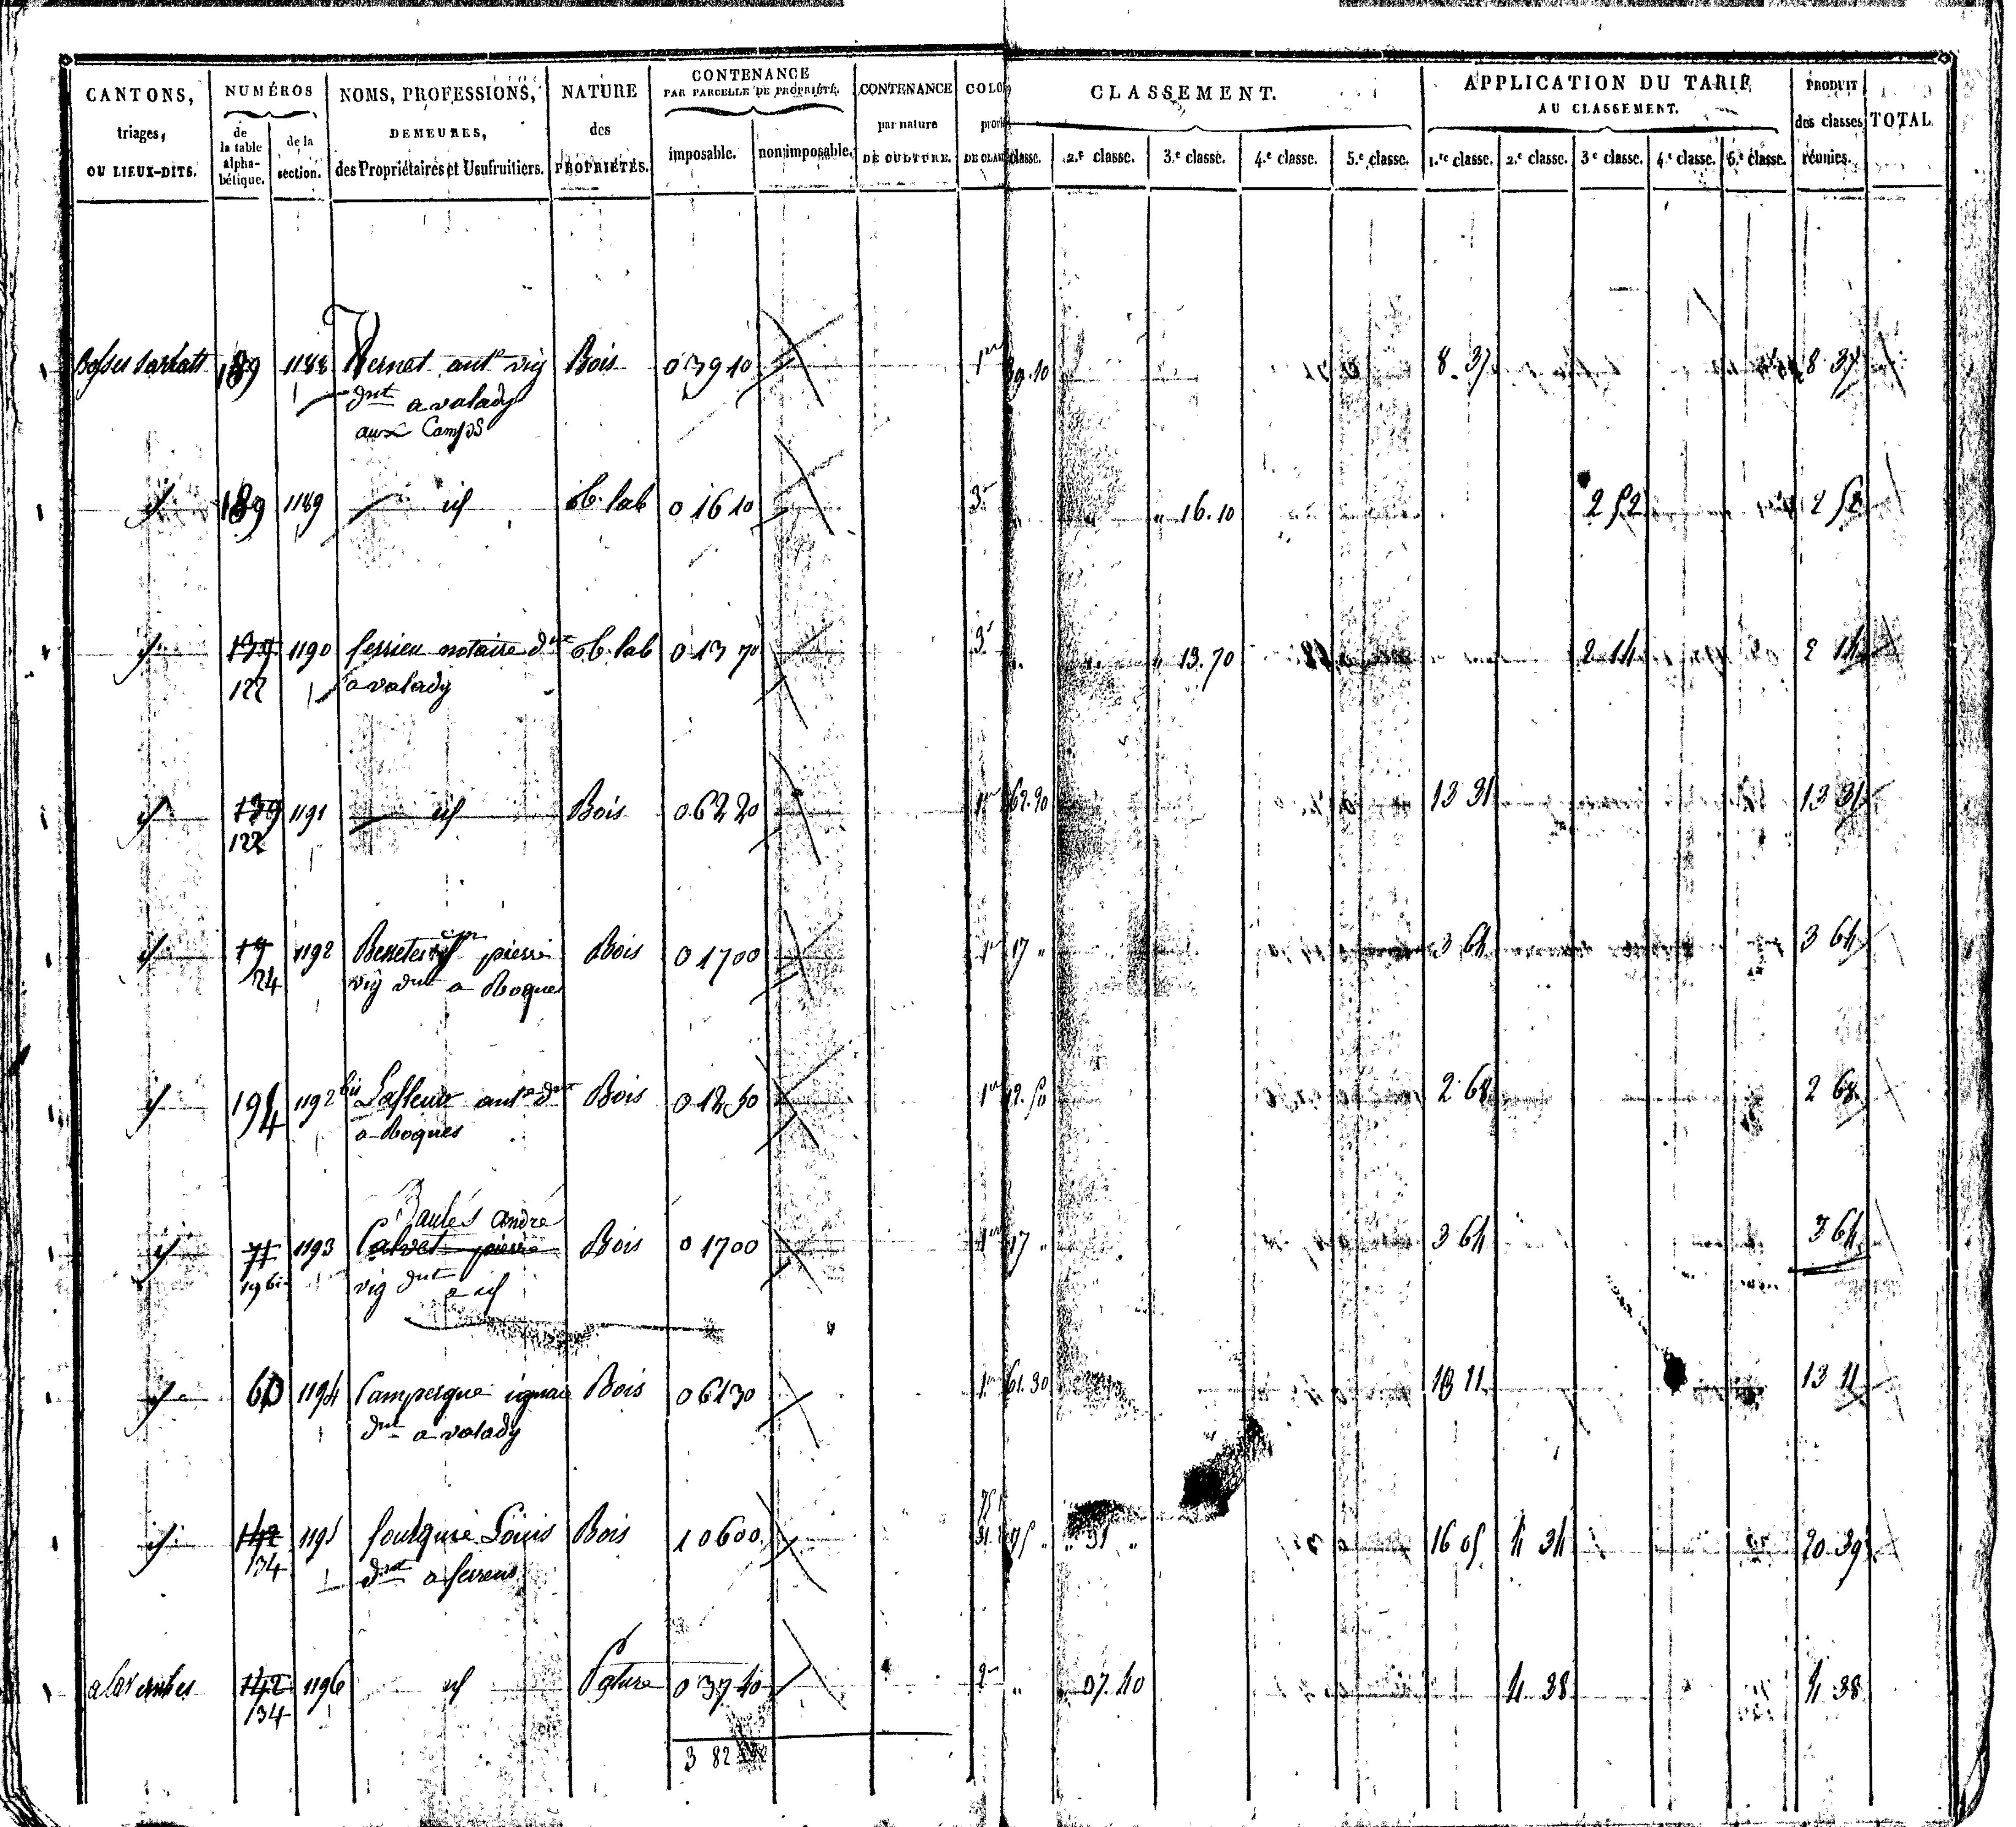 CANTONS, triages, OU LIEUX-DITS. NUMÉROS de la table alpha-bétique. de la section. NOMS, PROFESSIONS, DEMEURES, des Propriétaires et Usufruitiers. NATURE des PROPRIÉTÉS. CONTENANCE PAR PARCELLE DE PROPRIÉTÉ. imposable. non imposable. CONTENANCE par nature DE CULTURE. CLASSEMENT. classe. 2.e classe. 3.e classe. 4.e classe. 5.e classe. APPLICATION DU TARIF AU CLASSEMENT. 1.re classe. 2.e classe. 3.e classe. 4.e classe. 5.e classe. PRODUIT des classes réunies. TOTAL.
189 1188 Vernet ant.e vig Bois 0 39 10 1re 39.10 8 37 8 37
dnt a valady
aux Camps
id 189 1189 id lab 0 16 10 3e 16.10 2 52 2 52
id 139 1190 notaire dnt lab 0 13 70 3e 13.70 2 14 2 14
122 a valady
id 139 1191 id Bois 0 62 20 1re 62.20 13 31 13 31
122
id 1192 pierre Bois 0 17 00 1re 17 " 3 64 3 64
24 vig dnt a Roques
id 194 1192 bis Lafleur ant.e dnt Bois 0 12 50 1re 12.50 2 68 2 68
a Roques
Baulés André
id 71 1193 Calvet pierre Bois 0 17 00 1re 17 " 3 64 3 64
vig dnt a id
id 60 1194 Campergue ignace Bois 0 61 30 1re 61.30 13 11 13 11
dnt a valady
id 142 1195 Louis Bois 1 06 00 75 " 31 " 16 05 4 34 20 39
134 dnt a
142 1196 id Pature 0 37 40 2e 37.40 4 38 4 38
134
3 82